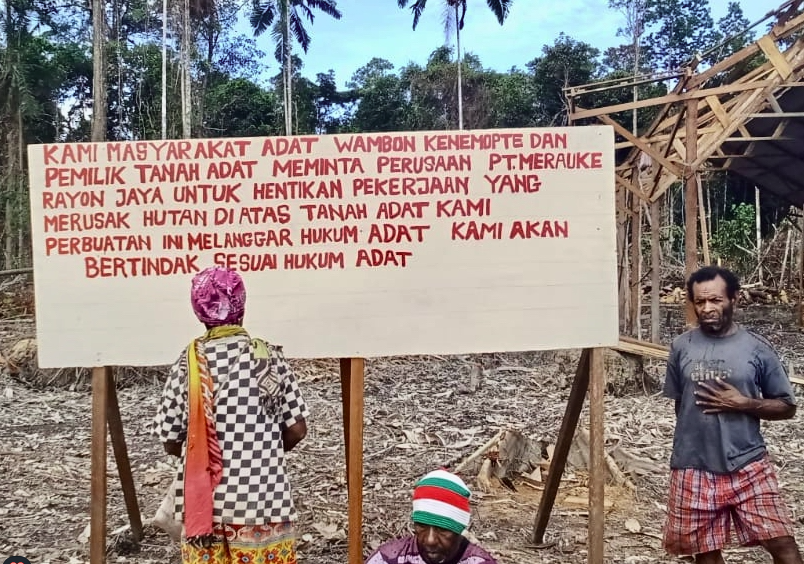 KAMI MASYARAKAT ADAT WAMBON KENEMOPTE DAN
PEMILIK TANAH ADAT MEMINTA PERUSAAN PT.MERAUKE
RAYON JAYA UNTUK HENTIKAN PEKERJAAN YANG
MERUSAK HUTAN DI ATAS TANAH ADAT KAMI
PERBUATAN INI MELANGGAR HUKUM ADAT KAMI AKAN
BERTINDAK SESUAI HUKUM ADAT